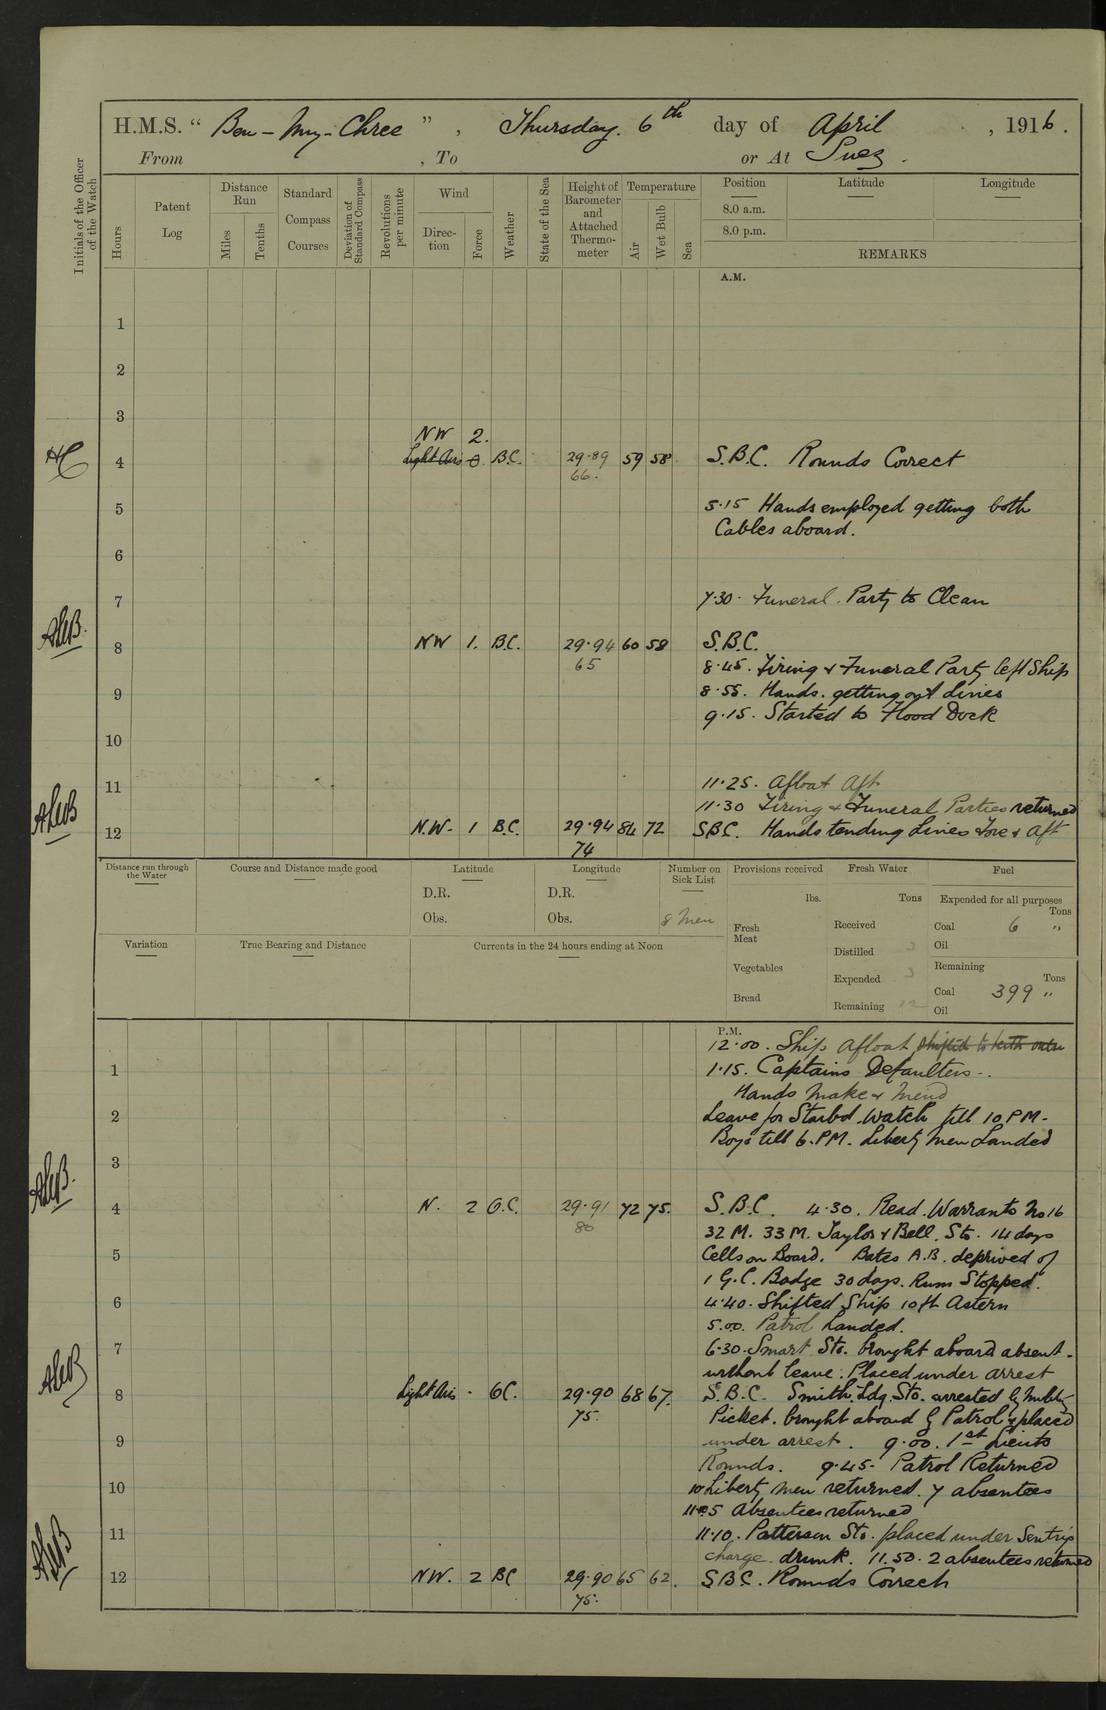 H.M.S. “ Ben-My-Chree ” , Thursday. 6th day of April , 1916 .
From , To or At Suez .
Initials of the Officer of the Watch
Hours
Patent Log
Distance Run
Miles
Tenths
Standard Compass Courses
Deviation of Standard Compass
Revolutions per minute
Wind
Direc-tion
Force
Weather
State of the Sea
Height of Barometer and Attached Thermo-meter
Temperature
Air
Wet Bulb
Sea
Position Latitude Longitude
8.0 a.m.
8.0 p.m.
REMARKS
A.M.
1
2
3
NW 2.
4 Light Airs 0 B.C. 29.89 59 58 S.B.C. Rounds Correct
66.
5 5.15 Hands employed getting both
Cables aboard.
6
7 7.30. Funeral. Party to Clean
8 NW 1. B.C. 29.94 60 58 S.B.C.
65 8.45. Firing & Funeral Party left Ship
9 8.55. Hands. getting out Lines
9.15. Started to Flood Dock
10
11 11.25. Afloat Aft
11.30 Firing & Funeral Parties returned
12 N.W. 1 B.C. 29.94 84 72 SBC. Hands tending Lines Fore & Aft
74
Distance run through the Water
Course and Distance made good
Latitude
D.R.
Obs.
Longitude
D.R.
Obs.
Number on Sick List
8 Men
Provisions received
lbs.
Fresh Meat
Vegetables
Bread
Fresh Water
Tons
Received
Distilled 3
Expended 3
Remaining 12
Fuel
Expended for all purposes
Tons
Coal 6 "
Oil
Remaining
Tons
Coal 399 "
Oil
Variation
True Bearing and Distance
Currents in the 24 hours ending at Noon
P.M.
12.00. Ship afloat
1 1.15. Captains Defaulters-.
Hands Make & Mend
2 Leave for Starbd. Watch till 10 PM-
Boys till 6.PM. Liberty Men Landed
3
4 N. 2 O.C. 29.91 72 75. S.B.C. 4.30. Read. Warrants No 16
80 32 M. 33 M. Taylor & Bell. Sto. 14 days
5 Cells on Board. Bates A.B. deprived of
1 G.C. Badge 30 days. Rum Stopped.
6 4.40. Shifted Ship 10 ft Astern
5.00. Patrol Landed.
7 6.30. Smart Sto. brought aboard absent-
without leave: Placed under arrest
8 Light Airs - OC. 29.90 68 67. S.B.C. Smith. Ldg. Sto. arrested by Military
75. Picket. brought aboard by Patrol & placed
9 under arrest. 9.00. 1st Lieuts
Rounds. 9.45- Patrol Returned
10 10 Liberty men returned. 7 absentees
11.5 Absentees returned
11 11.10. Patterson Sto. placed under Sentrys
charge drunk. 11.50. 2 absentees returned
12 NW. 2 BC 29.90 65 62. SBC. Rounds Correct
75.